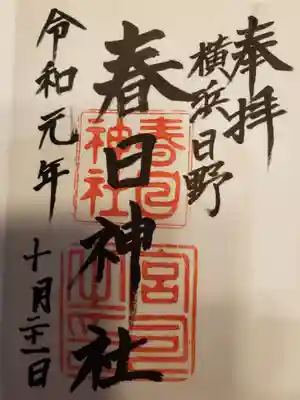 奉拝
横浜日野
春日神社
春日
神社
宮司
之印
令和元年
十月二十一日